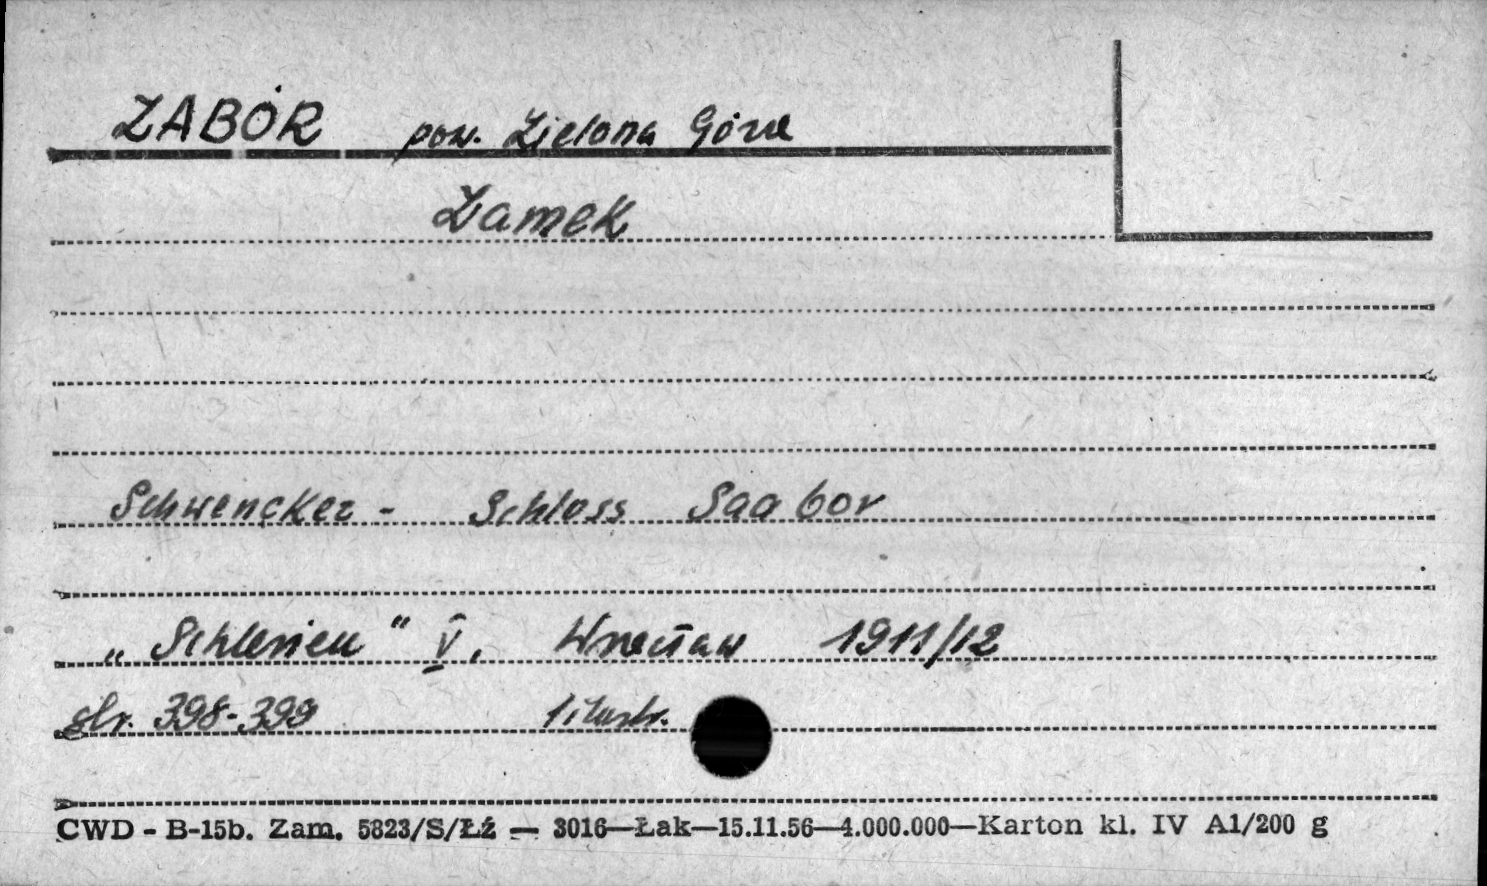 ZABÓR pow. Zielona Góra
Zamek
Schwencker - Schloss Saabor
„Schlesien" V. Wrocław 1911/12
str. 398-399 1 ilustr.
CWD - B-15b. Zam. 5823/S/Łź — 3016—Łak—15.11.56—4.000.000—Karton kl. IV A1/200 g